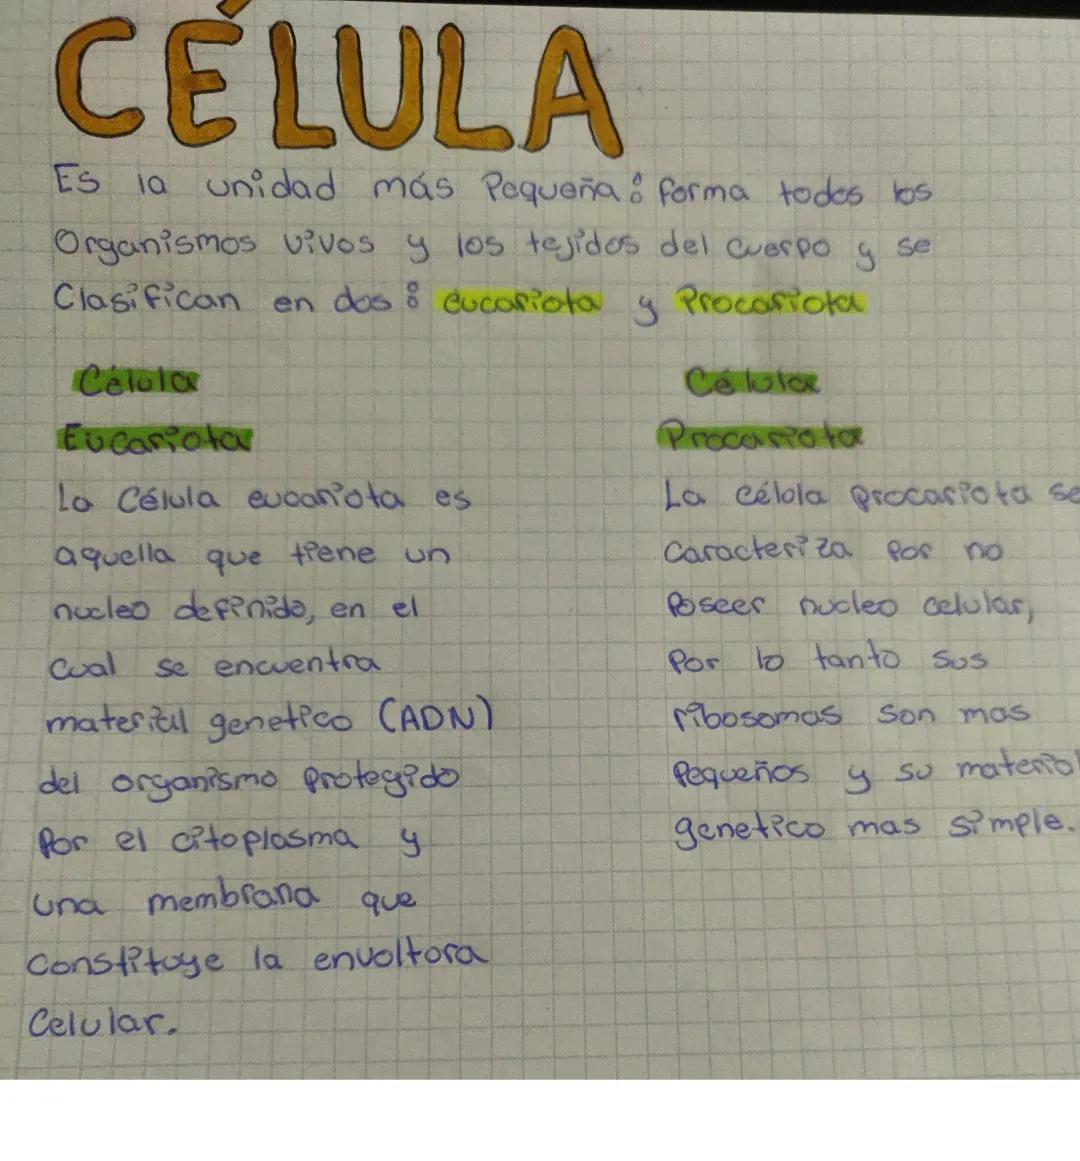 CÉLULA
Es la unidad más Pequeña: forma todos los
Organismos vivos y los tejidos del cuerpo y se
Clasifican en dos: eucariota y Procariota
Célula
Eucariota
La Célula eucariota es
aquella que tiene un
nucleo definido, en el
cual se encuentra
material genetico (ADN)
del organismo protegido
Por el citoplasma y
una membrana que
constituye la envoltora
Celular.
Célula
Procariota
La célola procariota se
caracteriza por no
Poseer nucleo celular,
Por lo tanto sus
ribosomas son mas
Pequeños y su material
genetico mas simple.